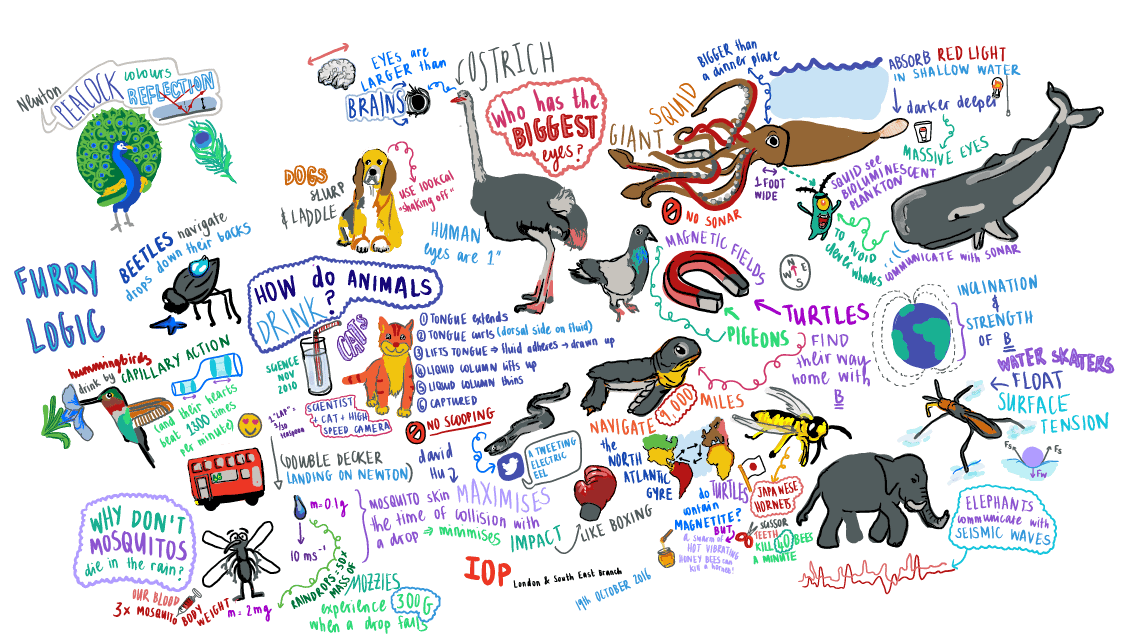 Newton
PEACOCK
colours
REFLECTION
EYES are
LARGER than
BRAINS
OSTRICH
WHO has the
BIGGEST
eyes?
BIGGER than
a dinner plate
GIANT
SQUID
1 FOOT
WIDE
ABSORB RED LIGHT
IN SHALLOW WATER
darker deeper
MASSIVE EYES
SQUID see
BIOLUMINESCENT
PLANKTON
TO AVOID
clever whales
COMMUNICATE with SONAR
NO SONAR
DOGS
SLURP
& LADDLE
USE 100KCAL
"shaking off"
HUMAN
eyes are 1"
BEETLES navigate
drops down their backs
FURRY
LOGIC
HOW do ANIMALS
DRINK?
SCIENCE
NOV
2010
CATS
① TONGUE extends
② TONGUE curls (dorsal side on fluid)
③ LIFTS TONGUE → fluid adheres → drawn up
④ LIQUID COLUMN lifts up
⑤ LIQUID COLUMN thins
⑥ CAPTURED
SCIENTIST
+ CAT + HIGH
SPEED CAMERA
NO SCOOPING
hummingbirds
drink by CAPILLARY ACTION
(and their hearts
beat 1300 times
per minute)
MAGNETIC FIELDS
N
W E
S
PIGEONS
TURTLES
FIND
their way
home with
B
INCLINATION
&
STRENGTH
OF B
WATER SKATERS
FLOAT
SURFACE
TENSION
Fs
Fs
Fw
9,000 MILES
NAVIGATE
the
NORTH
ATLANTIC
GYRE
do TURTLES
contain
MAGNETITE?
BUT
JAPANESE
HORNETS
SCISSOR
TEETH
KILL 40 BEES
A MINUTE
a swarm of
HOT VIBRATING
HONEY BEES can
kill a hornet!
ELEPHANTS
communicate with
SEISMIC WAVES
david
Hu
A TWEETING
ELECTRIC
EEL
(DOUBLE DECKER
LANDING ON NEWTON)
m=0.1g
10 ms⁻¹
MOSQUITO skin MAXIMISES
the time of collision with
a drop → minimises IMPACT
LIKE BOXING
WHY DON'T
MOSQUITOS
die in the rain?
OUR BLOOD
3x MOSQUITO BODY
WEIGHT
m = 2mg
RAINDROPS = 50x
MASS OF
MOZZIES
experience 300G
when a drop falls
IOP London & South East Branch
19th OCTOBER 2016